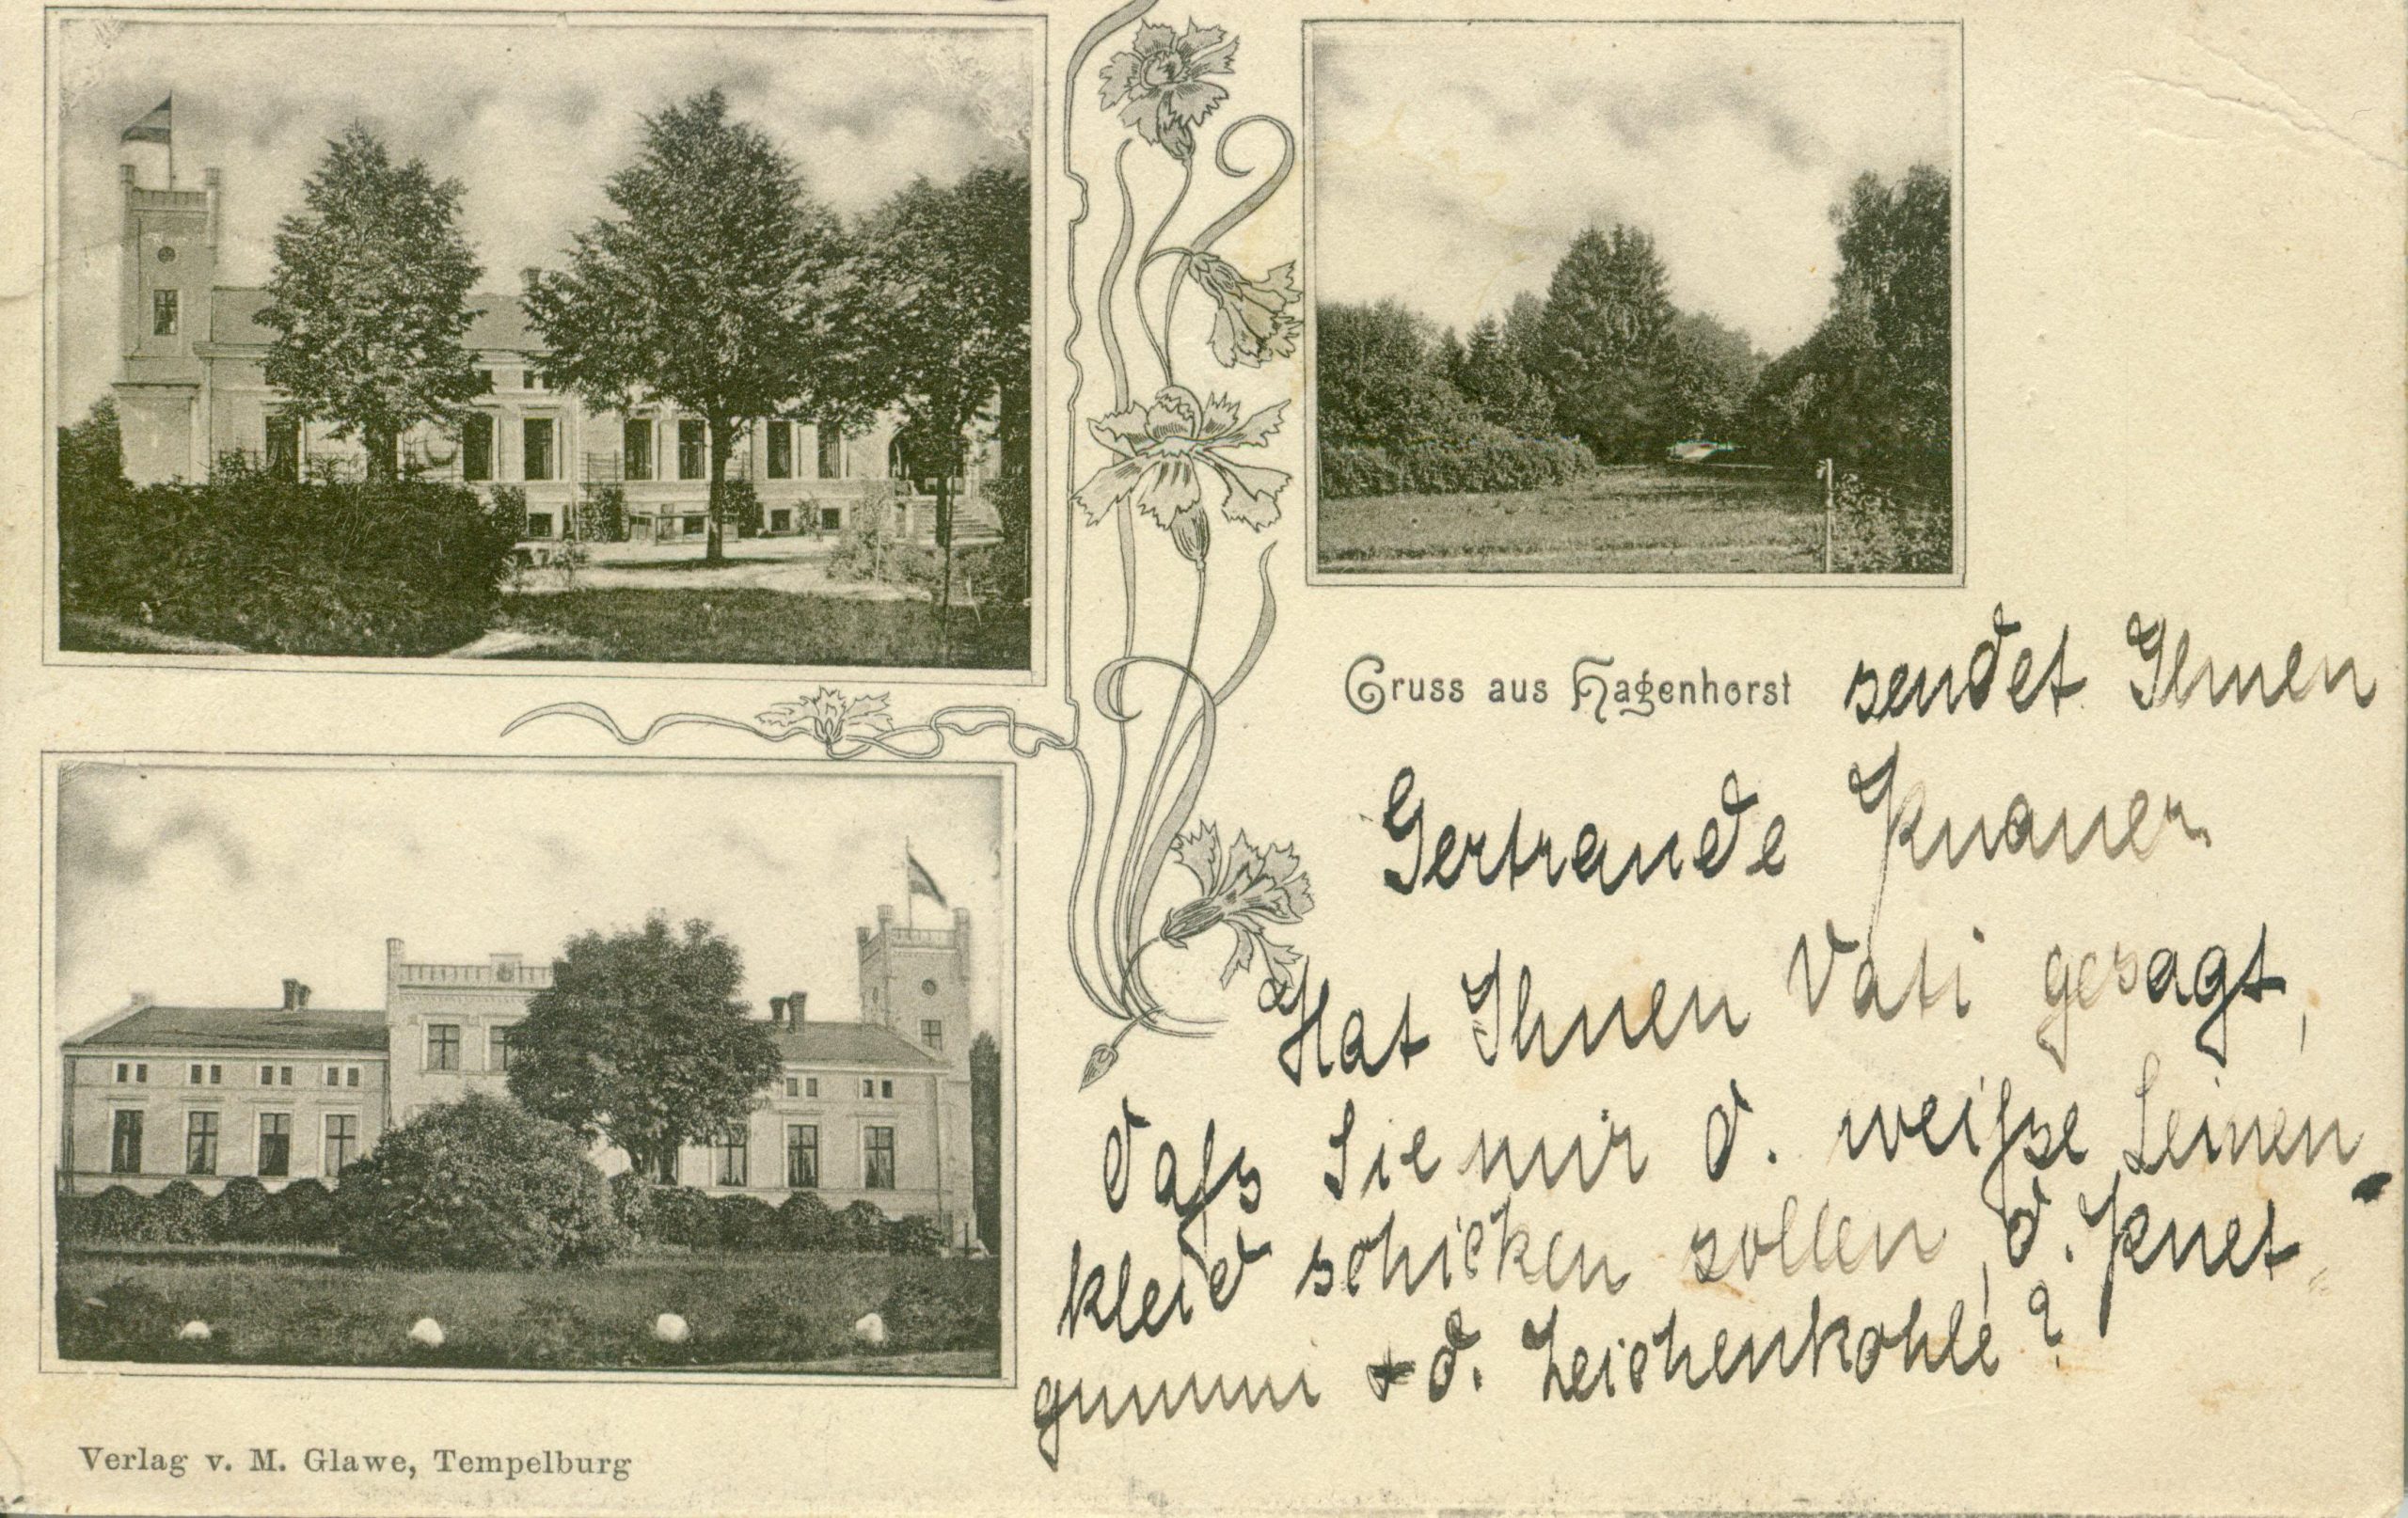 Gruss aus Hagenhorst sendet Ihnen
Gertraude Knauer
Hat Ihnen Vati gesagt,
dass Sie mir d. weisse Leinen-
kleid schicken sollen, d. Knet
gummi + d. Zeichenkohle?
Verlag v. M. Glawe, Tempelburg